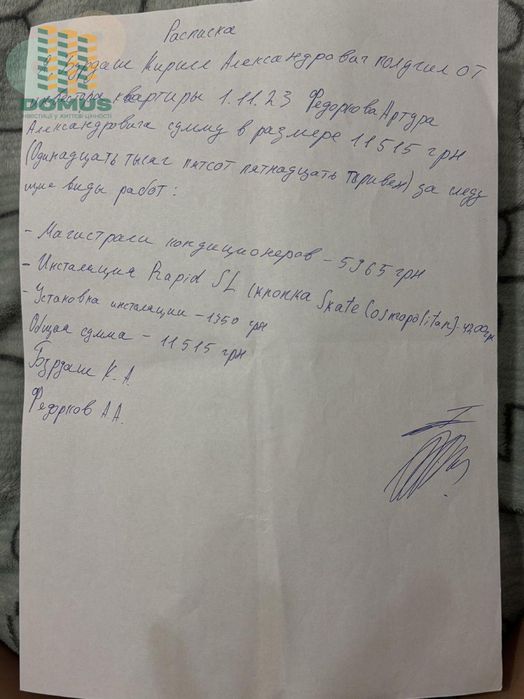 Расписка
Я Бурдаш Кирилл Александрович получил от
квартиры 1.11.23 Федоркова Артура
DOMUS
ІНВЕСТИЦІЇ У ЖИТТЄВІ ЦІННОСТІ
Александровича сумму в размере 11515 грн
(Одинадцать тысяч пятсот пятнадцать гривен) за следу
щие виды работ:
- Магистрали кондиционеров - 5965 грн
- Инсталяция Rapid SL (кнопка Skate Cosmopolitan) - 4200 грн
- Установка инсталяции - 1350 грн
Общая сумма - 11515 грн
Бурдаш К.А.
Федорков А А.